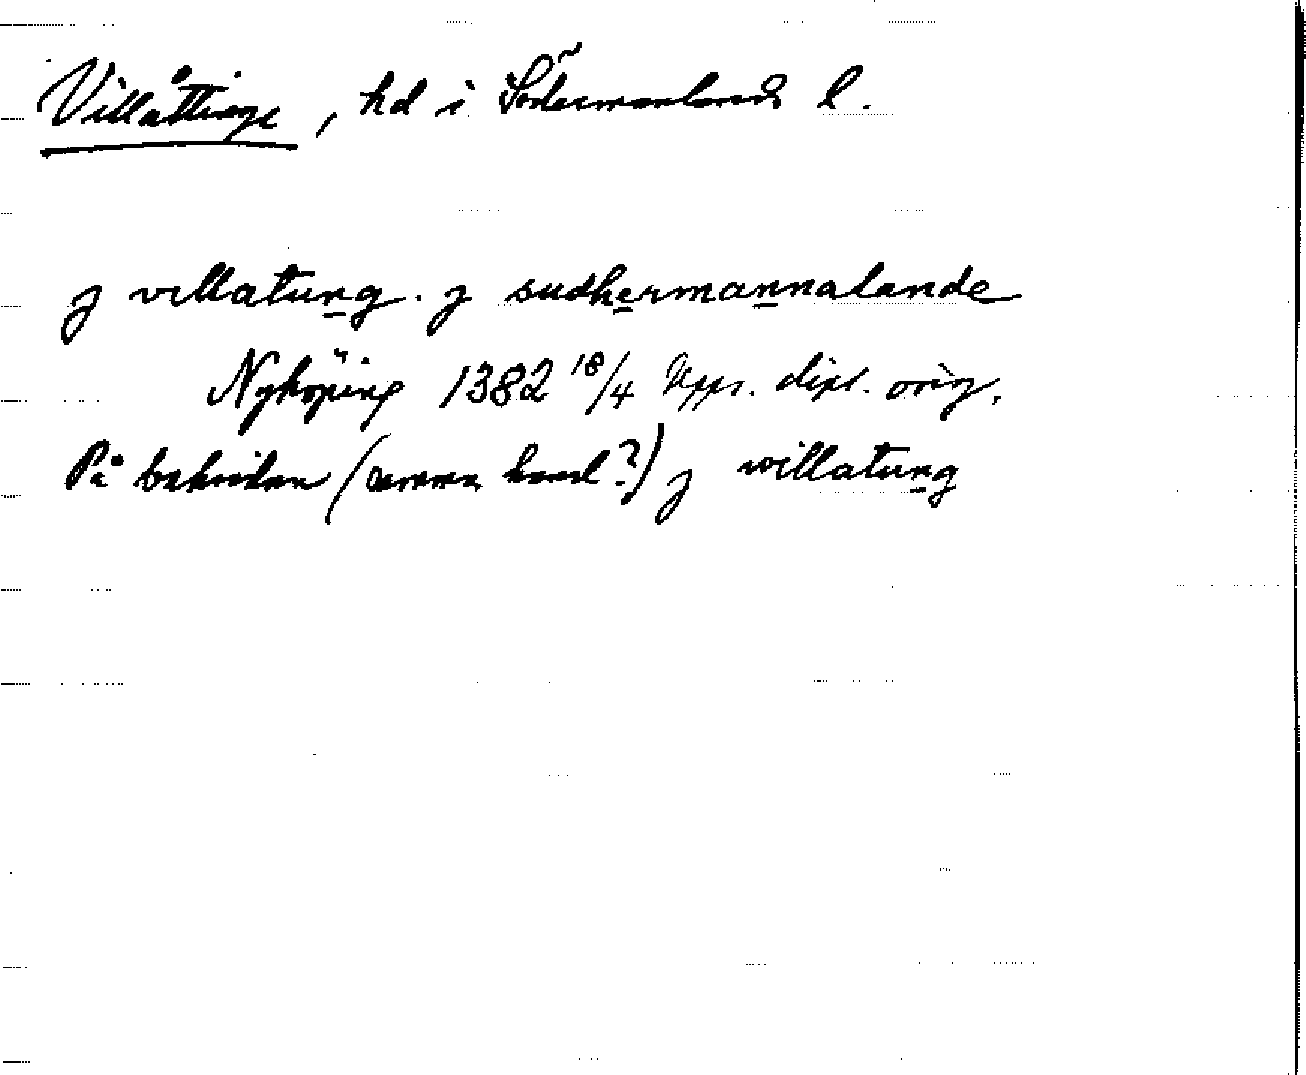 Villåttinge, hd i Södermanlands l.
j villatung. j sudhermannalande
Nyköping 1382 18/4 Upps. dipl. orig.
På baksidan (samma hand?) j willatung